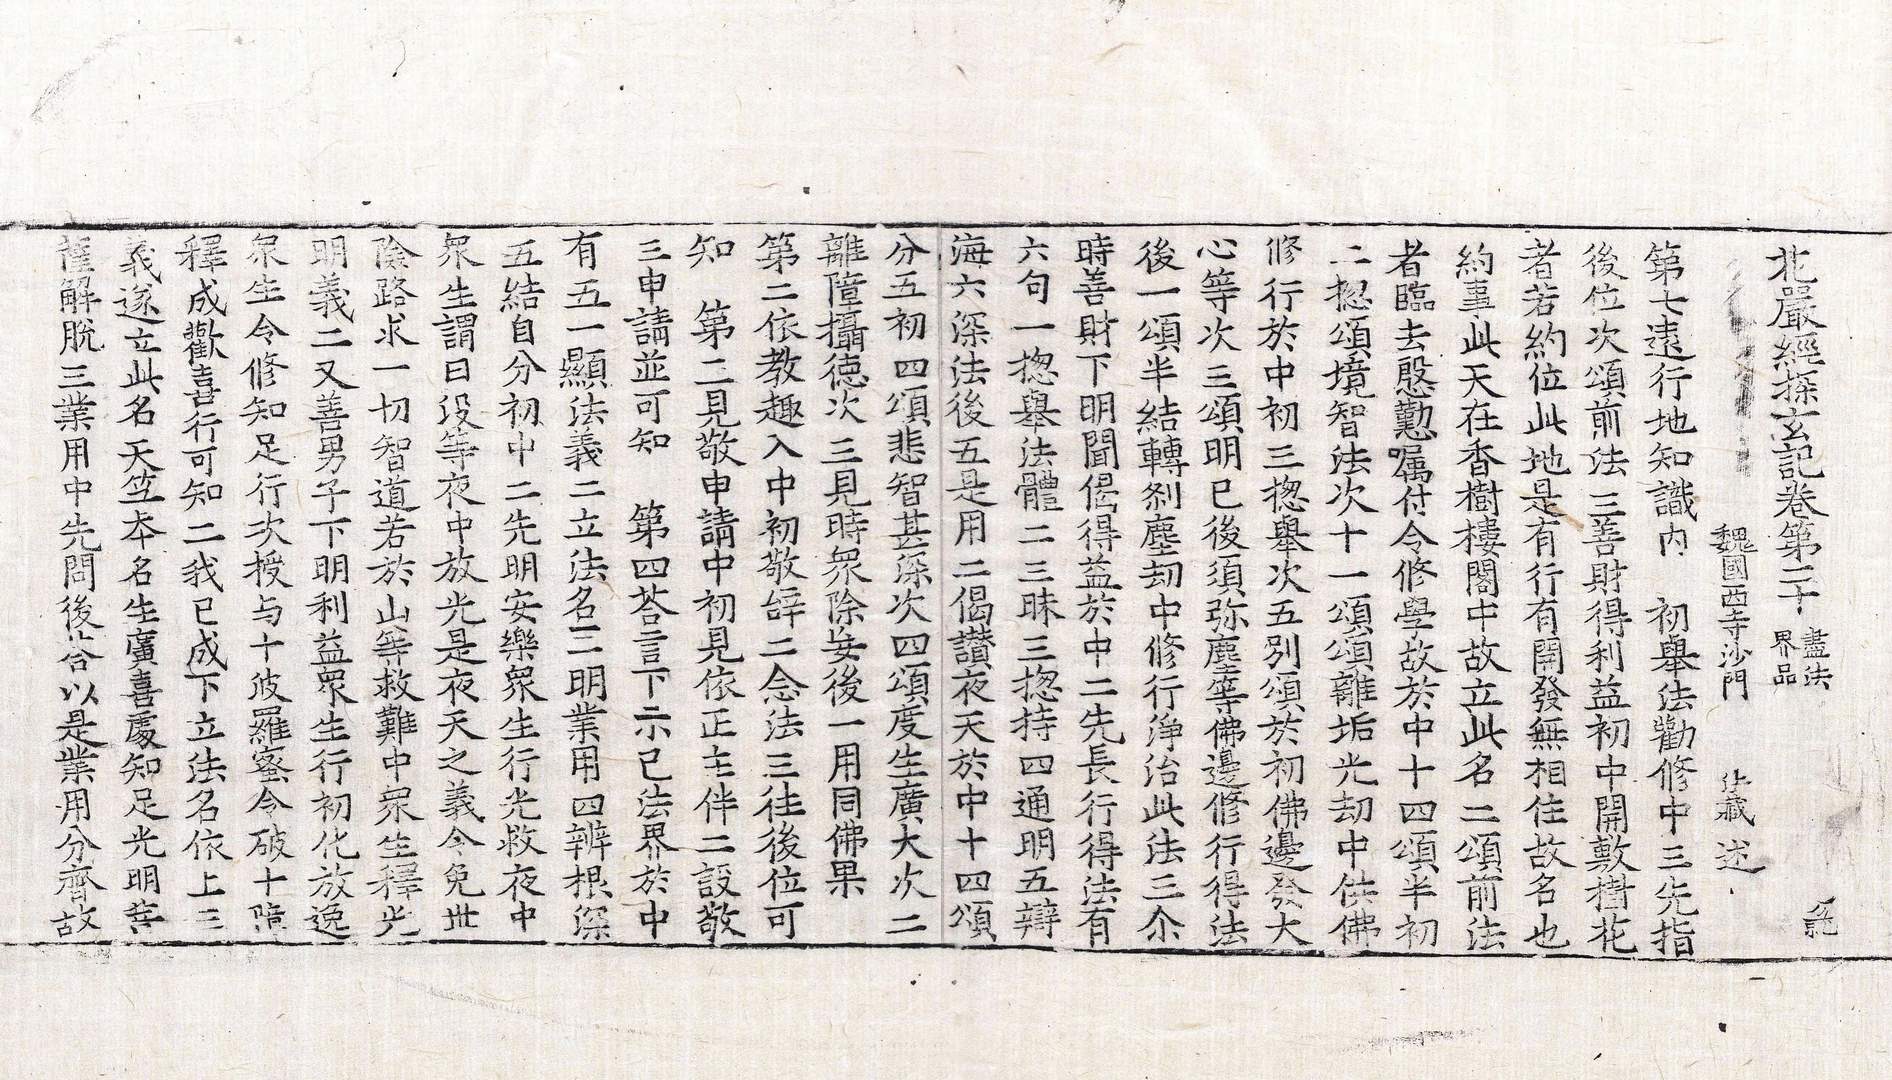 花嚴經探玄記卷第二十 盡法界品
魏國西寺沙門 法藏 述
第七遠行地知識內 初舉法勸修中三先指
後位次頌前法三善財得利益初中開敷樹花
者若約位此地是有行有開發無相住故名也
約事此天在香樹樓閣中故立此名二頌前法
者臨去慇懃囑付令修學故於中十四頌半初
二揔頌境智法次十一頌頌離垢光劫中供佛
修行於中初三揔舉次五別頌於初佛邊發大
心等次三頌明已後須弥塵等佛邊修行得法
後一頌半結轉剎塵劫中修行淨治此法三尒
時善財下明聞偈得益於中二先長行得法有
六句一揔舉法體二三昧三揔持四通明五辯
海六深法後五是用二偈讃夜天於中十四頌
分五初四頌悲智甚深次四頌度生廣大次二
離障攝德次三見時眾除妄後一用同佛果
第二依教趣入中初敬辞二念法三徃後位可
知 第二見敬申請中初見依正主伴二設敬
三申請並可知 第四荅言下示已法界於中
有五一顯法義二立法名三明業用四辨根深
五結自分初中二先明安樂眾生行光救夜中
眾生謂日没等夜中放光是夜天之義令免世
險路求一切智道若於山等救難中眾生釋光
明義二又善男子下明利益眾生行初化放逸
眾生令修知足行次授与十波羅蜜令破十障
釋成歡喜行可知二我已成下立法名依上三
義遂立此名天笁夲名生廣喜處知足光明等
種解脫三業用中先問後荅以是業用分齊故